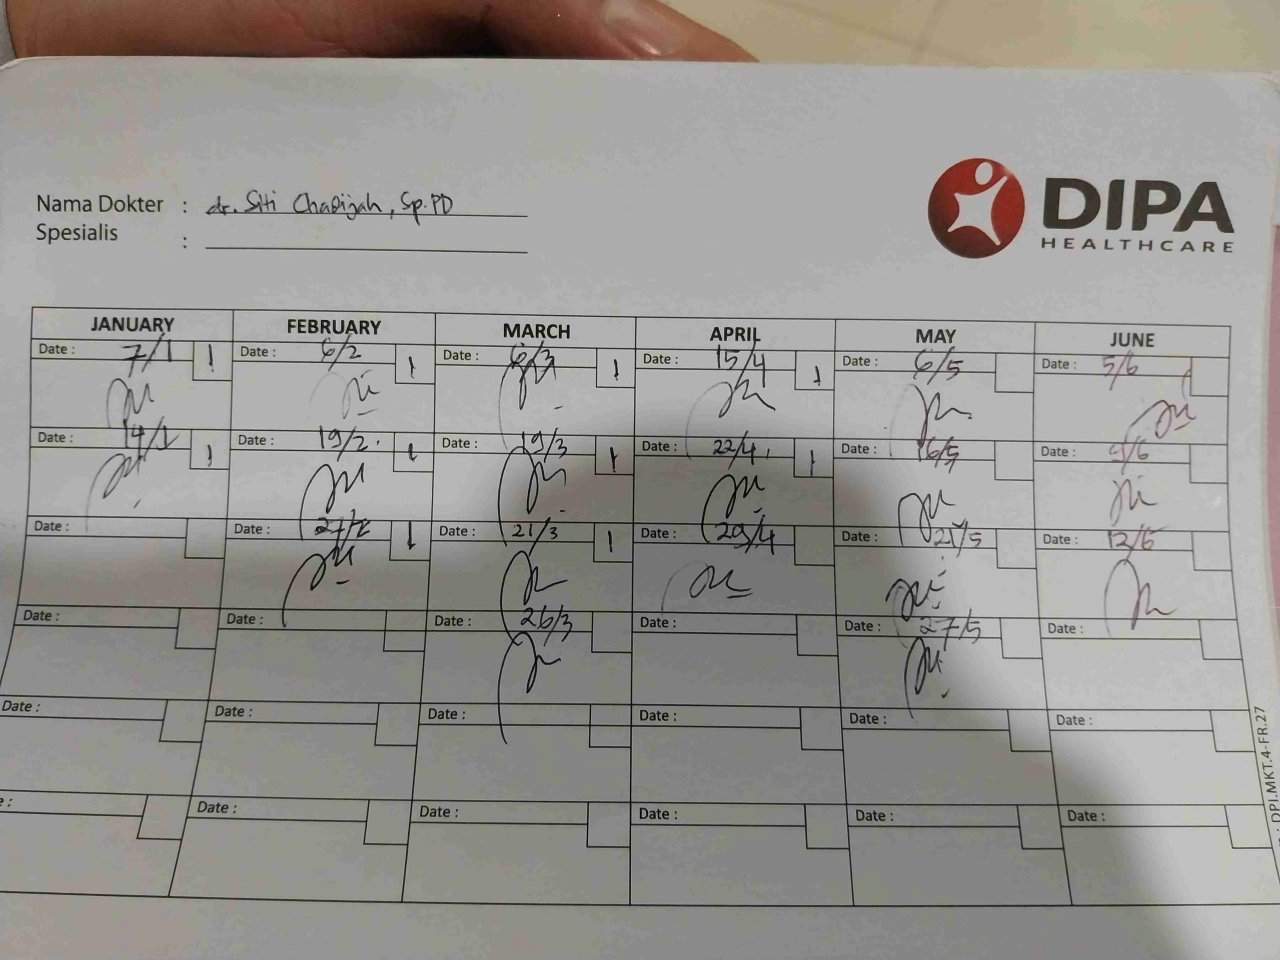 Nama Dokter : dr. Siti Chadijah, Sp.PD
Spesialis :
DIPA
HEALTHCARE
JANUARY FEBRUARY MARCH APRIL MAY JUNE
Date : 7/1 1 Date : 6/2 1 Date : 6/3 1 Date : 15/4 1 Date : 6/5 Date : 5/6
Date : 14/1 1 Date : 19/2 1 Date : 19/3 1 Date : 22/4 1 Date : 16/5 Date :
Date : Date : 27/2 1 Date : 21/3 1 Date : 29/4 Date : 21/5 Date : 12/6
Date : Date : Date : 26/3 Date : Date : 27/5 Date :
Date : Date : Date : Date : Date : Date :
Date : Date : Date : Date : Date :
DPI.MKT.4-FR.27